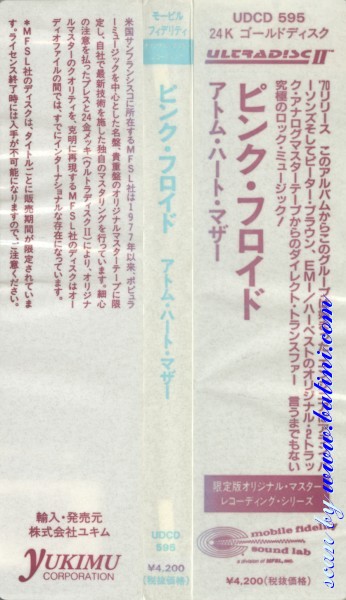 UDCD 595
24K ゴールドディスク
ULTRADISC II
'70リリース このアルバムからこのグループの
ーソンズそしてピーター・ブラウン、EMI／ハーベストのオリジナル・2トラッ
ク・アナログマスターテープからのダイレクト・トランスファー 言うまでもない
究極のロック・ミュージック！
ピンク・フロイド
アトム・ハート・マザー
限定版オリジナル・マスター
レコーディング・シリーズ
mobile fidelity
sound lab
a division of MFSL, INC.
¥4,200(税抜価格)
モービル
フィデリティ
ピンク・フロイド アトム・ハート・マザー
UDCD
595
¥4,200
(税抜価格)
米国サンフランシスコに所在するMFSL社は1977年以来、ポピュラ
ーミュージックを中心とした名盤、貴重盤のオリジナルマスターテープに限
定し、自社で最新技術を施した独自のマスタリングを行っています。細心
の注意を払ったプレスと24金メッキ（ウルトラディスクII）により、オリジナ
ルマスターのクオリティを、克明に再現するMFSL社のディスクはオー
ディオファイルの間では、すでにインターナショナルな存在になっています。
＊MFSL社のディスクは、タイトルごとに販売期間が限定されていま
す。ライセンス終了時には入手が不可能になりますので、ご注意ください。
輸入・発売元
株式会社ユキム
YUKIMU
CORPORATION
scan by www.batini.com